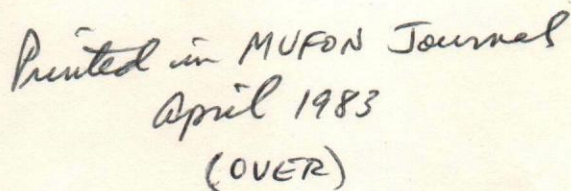 Printed in MUFON Journal
April 1983
(OVER)